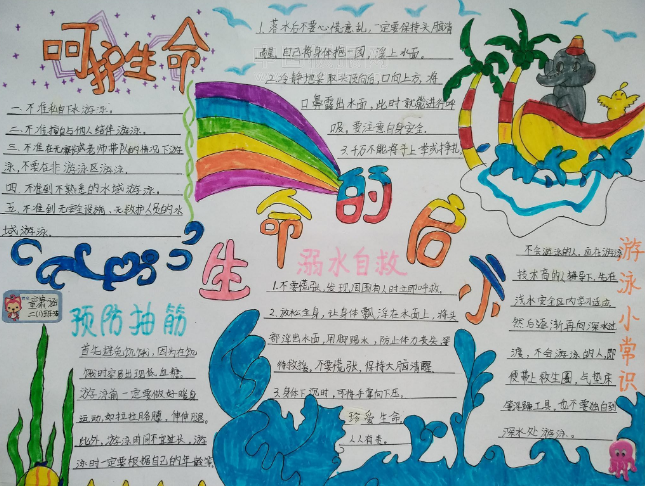 呵护生命
一.不准私自下水游泳。
二.不准擅自与他人结伴游泳。
三.不准在无家长或老师带队的情况下游
泳,不要在非游泳区游泳。
四.不准到不熟悉的水域游泳。
五.不准到无安全设施、无救护人员的水
域游泳。
1.落水后不要心慌意乱,一定要保持头脑清
醒,自己将身体抱一团,浮上水面。
2.冷静地采取头顶向后,口向上方,将
口鼻露出水面,此时就能进行呼
吸。要注意自身安全。
3.千万不能将手上举或挣扎。
生命的启示
溺水自救
1.不要慌张,发现周围有人时立即呼救。
2.放松全身,让身体飘浮在水面上,将头
部浮出水面,用脚踢水,防止体力丧失,等
待救援,不要慌张,保持大脑清醒
3.身体下沉时,可将手掌向下压。
珍爱生命,
人人有责。
二(1)班
预防抽筋
首先避免饥饿,因为在饥
饿时容易出现低血糖。
游泳前一定要做好暖身
运动,如拉拉胳膊,伸伸腿。
此外,游泳时间不宜过长,游
泳时一定要根据自己的年龄等
游泳小常识
不会游泳的人,应在游泳
技术高的人辅导下,先在
浅水安全区内学习适应,
然后逐渐再向深水过
渡,不会游泳的人,即
使带上救生圈,气垫床
等漂浮工具,也不要独自到
深水处游泳。